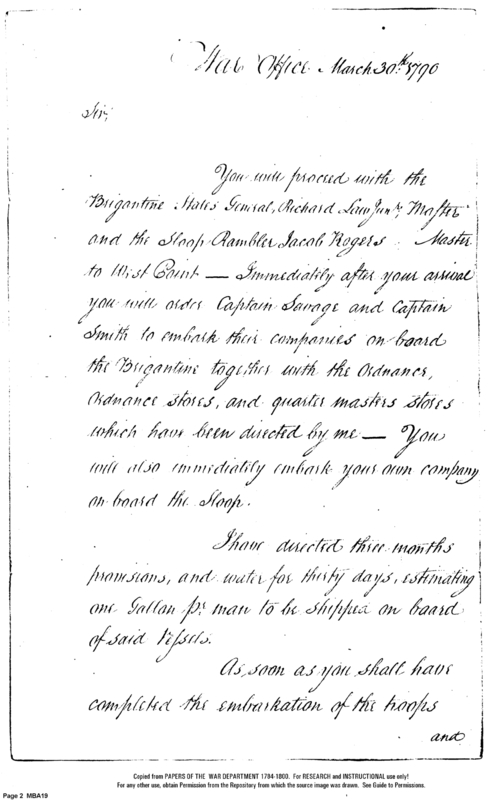 War Office March 30th 1790
Sir,
You will proceed with the
Brigantine States General, Richard Junr. Master
and the Sloop Rambler Jacob Rogers Master
to West Point — Immediately after your arrival
you will order Captain Savage and Captain
Smith to embark their companies on board
the Brigantine together with the Ordnance,
Ordnance stores, and quarter masters stores
which have been directed by me — You
will also immediately embark your own company
on board the Sloop.
I have directed three months
provisions, and water for thirty days, estimating
one Gallon pr. man to be shipped on board
of said Vessels.
As soon as you shall have
completed the embarkation of the troops
and
Copied from PAPERS OF THE WAR DEPARTMENT 1784-1800. For RESEARCH and INSTRUCTIONAL use only!
For any other use, obtain Permission from the Repository from which the source image was drawn. See Guide to Permissions.
Page 2 MBA19